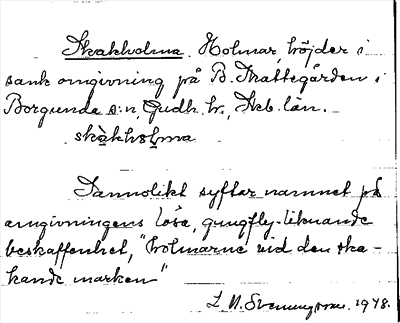 Skakholma. Holmar, höjder i
sank omgivning på B. Skattegården i
Borgunda s:n, Gudh. hr, Skb. län.
skàkhɔl̥ma
Sannolikt syftar namnet på
omgivningens lösa, gungfly-liknande
beskaffenhet, "holmarne vid den ska-
kande marken"
1948.